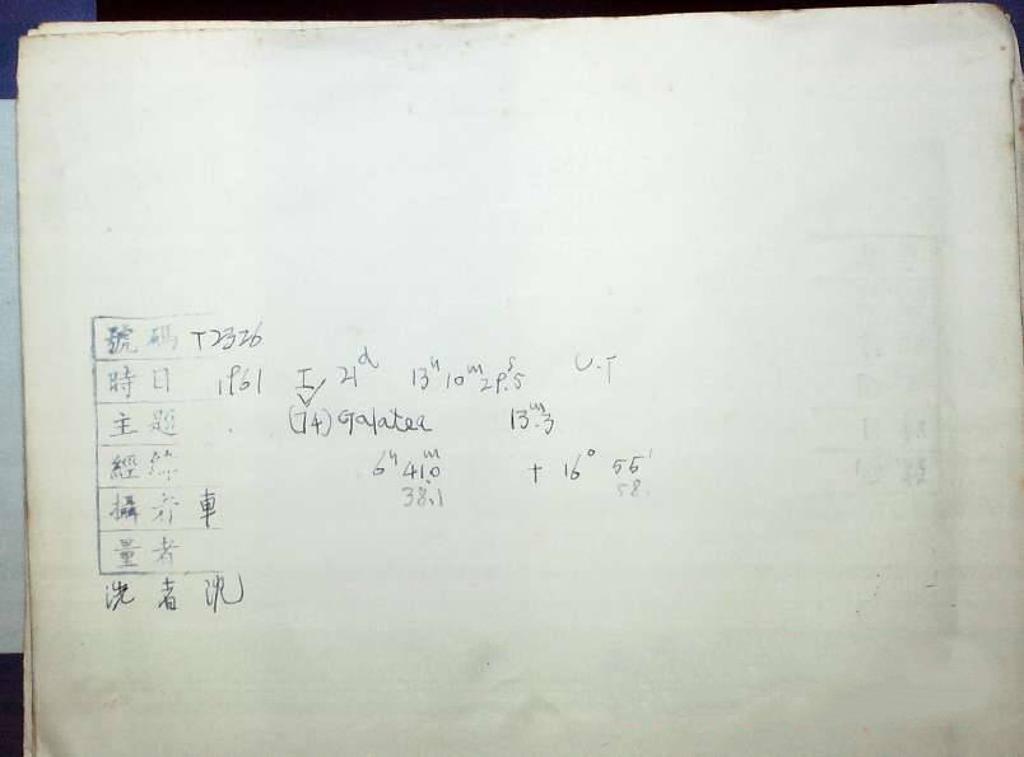 號碼 T2326
時日 1961 I 21ᵈ 13ʰ10ᵐ29ˢ.5 U.T
主題 (74) Galatea 13ᵐ.3
經緯 6ʰ 41ᵐ.0 + 16° 55'
38.1 58.
攝者 車
量者
洗者 沈